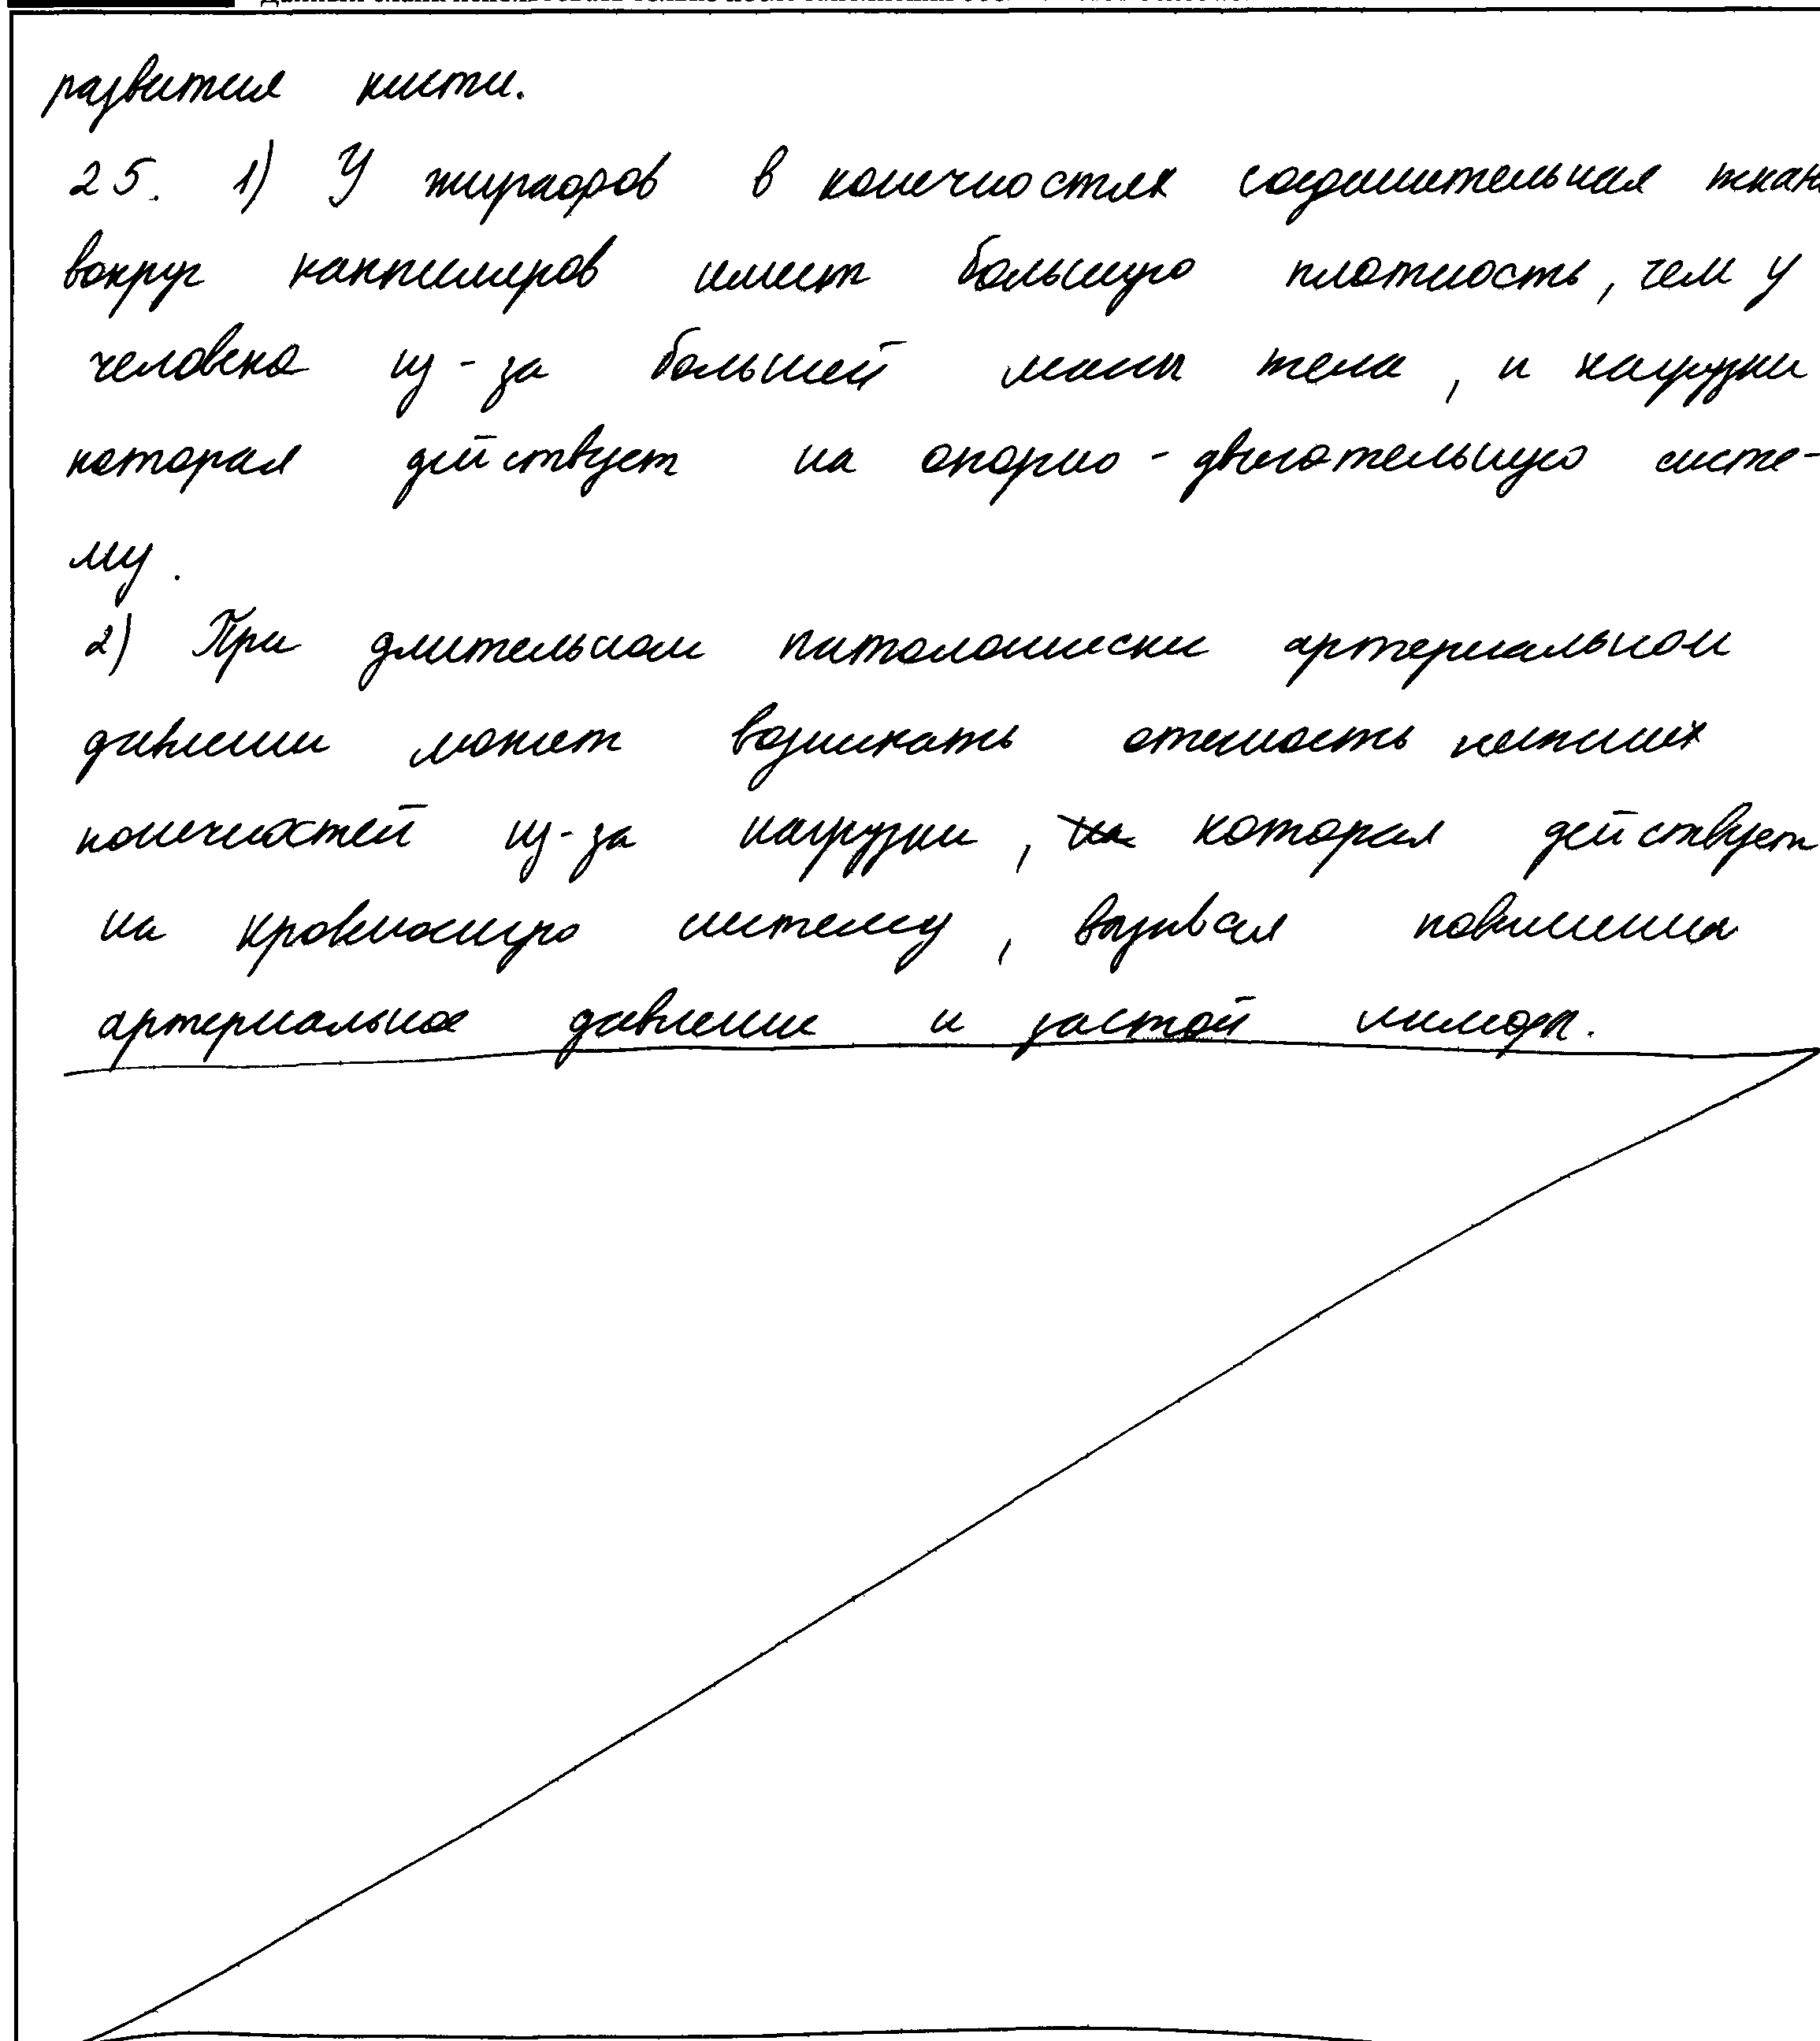 развития кисти.
25. 1) У жирафов в конечностях соединительная ткань
вокруг капилляров имеет большую плотность, чем у
человека из-за большей массы тела, и нагрузки
которая действует на опорно-двигательную систе-
му.
2) При длительном патологически артериальном
давлении может возникать отечность нижних
конечностей из-за нагрузки, на которая действует
на кровеносную систему, вызывая повышения
артериальное давление и застой лимфы.